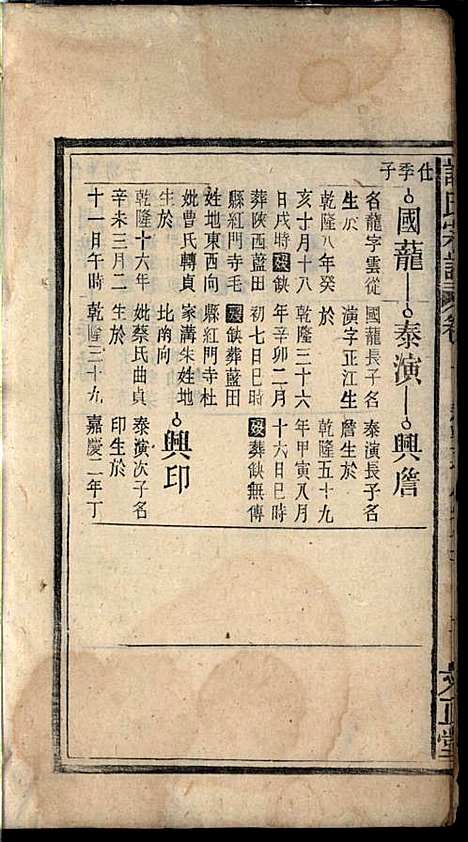 仕季子
國龍 泰演 興詹
名龍字雲從
生於
乾隆八年癸
亥十月十八
日戌時歿缺
葬陝西藍田
縣紅門寺毛
姓地東西向
妣曹氏轉貞
生於
乾隆十六年
辛未三月二
十一日午時
國龍長子名
演字正江生
於
乾隆三十六
年辛卯二月
初七日巳時
歿缺葬藍田
縣紅門寺杜
家溝朱姓地
比南向
妣蔡氏曲貞
生於
乾隆三十九
泰演長子名
詹生於
乾隆五十九
年甲寅八月
十六日巳時
歿葬缺無傳
興印
泰演次子名
印生於
嘉慶二年丁